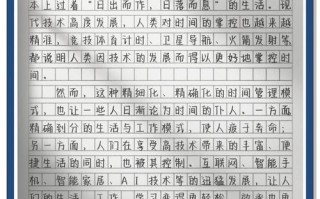 本上过着“日出而作，日落而息”的生活。现
代技术高度发展，人类对时间的掌控也越来越
精准，竞技体育计时、卫星导航、火箭发射等
都说明人类因技术的发展而得以更好地掌控时
间。
然而，这种精细化、精确化的时间管理模
式，也让一些人日渐沦为时间的仆人。一方面
精确到分的生活与工作模式，使人疲于奔命；
另一方面，人们在享受高技术带来的丰富、便
捷生活的同时，也被其控制。互联网、智能手
机、智能家居、AI技术等的迅猛发展，让人
们的生活、工作、学习